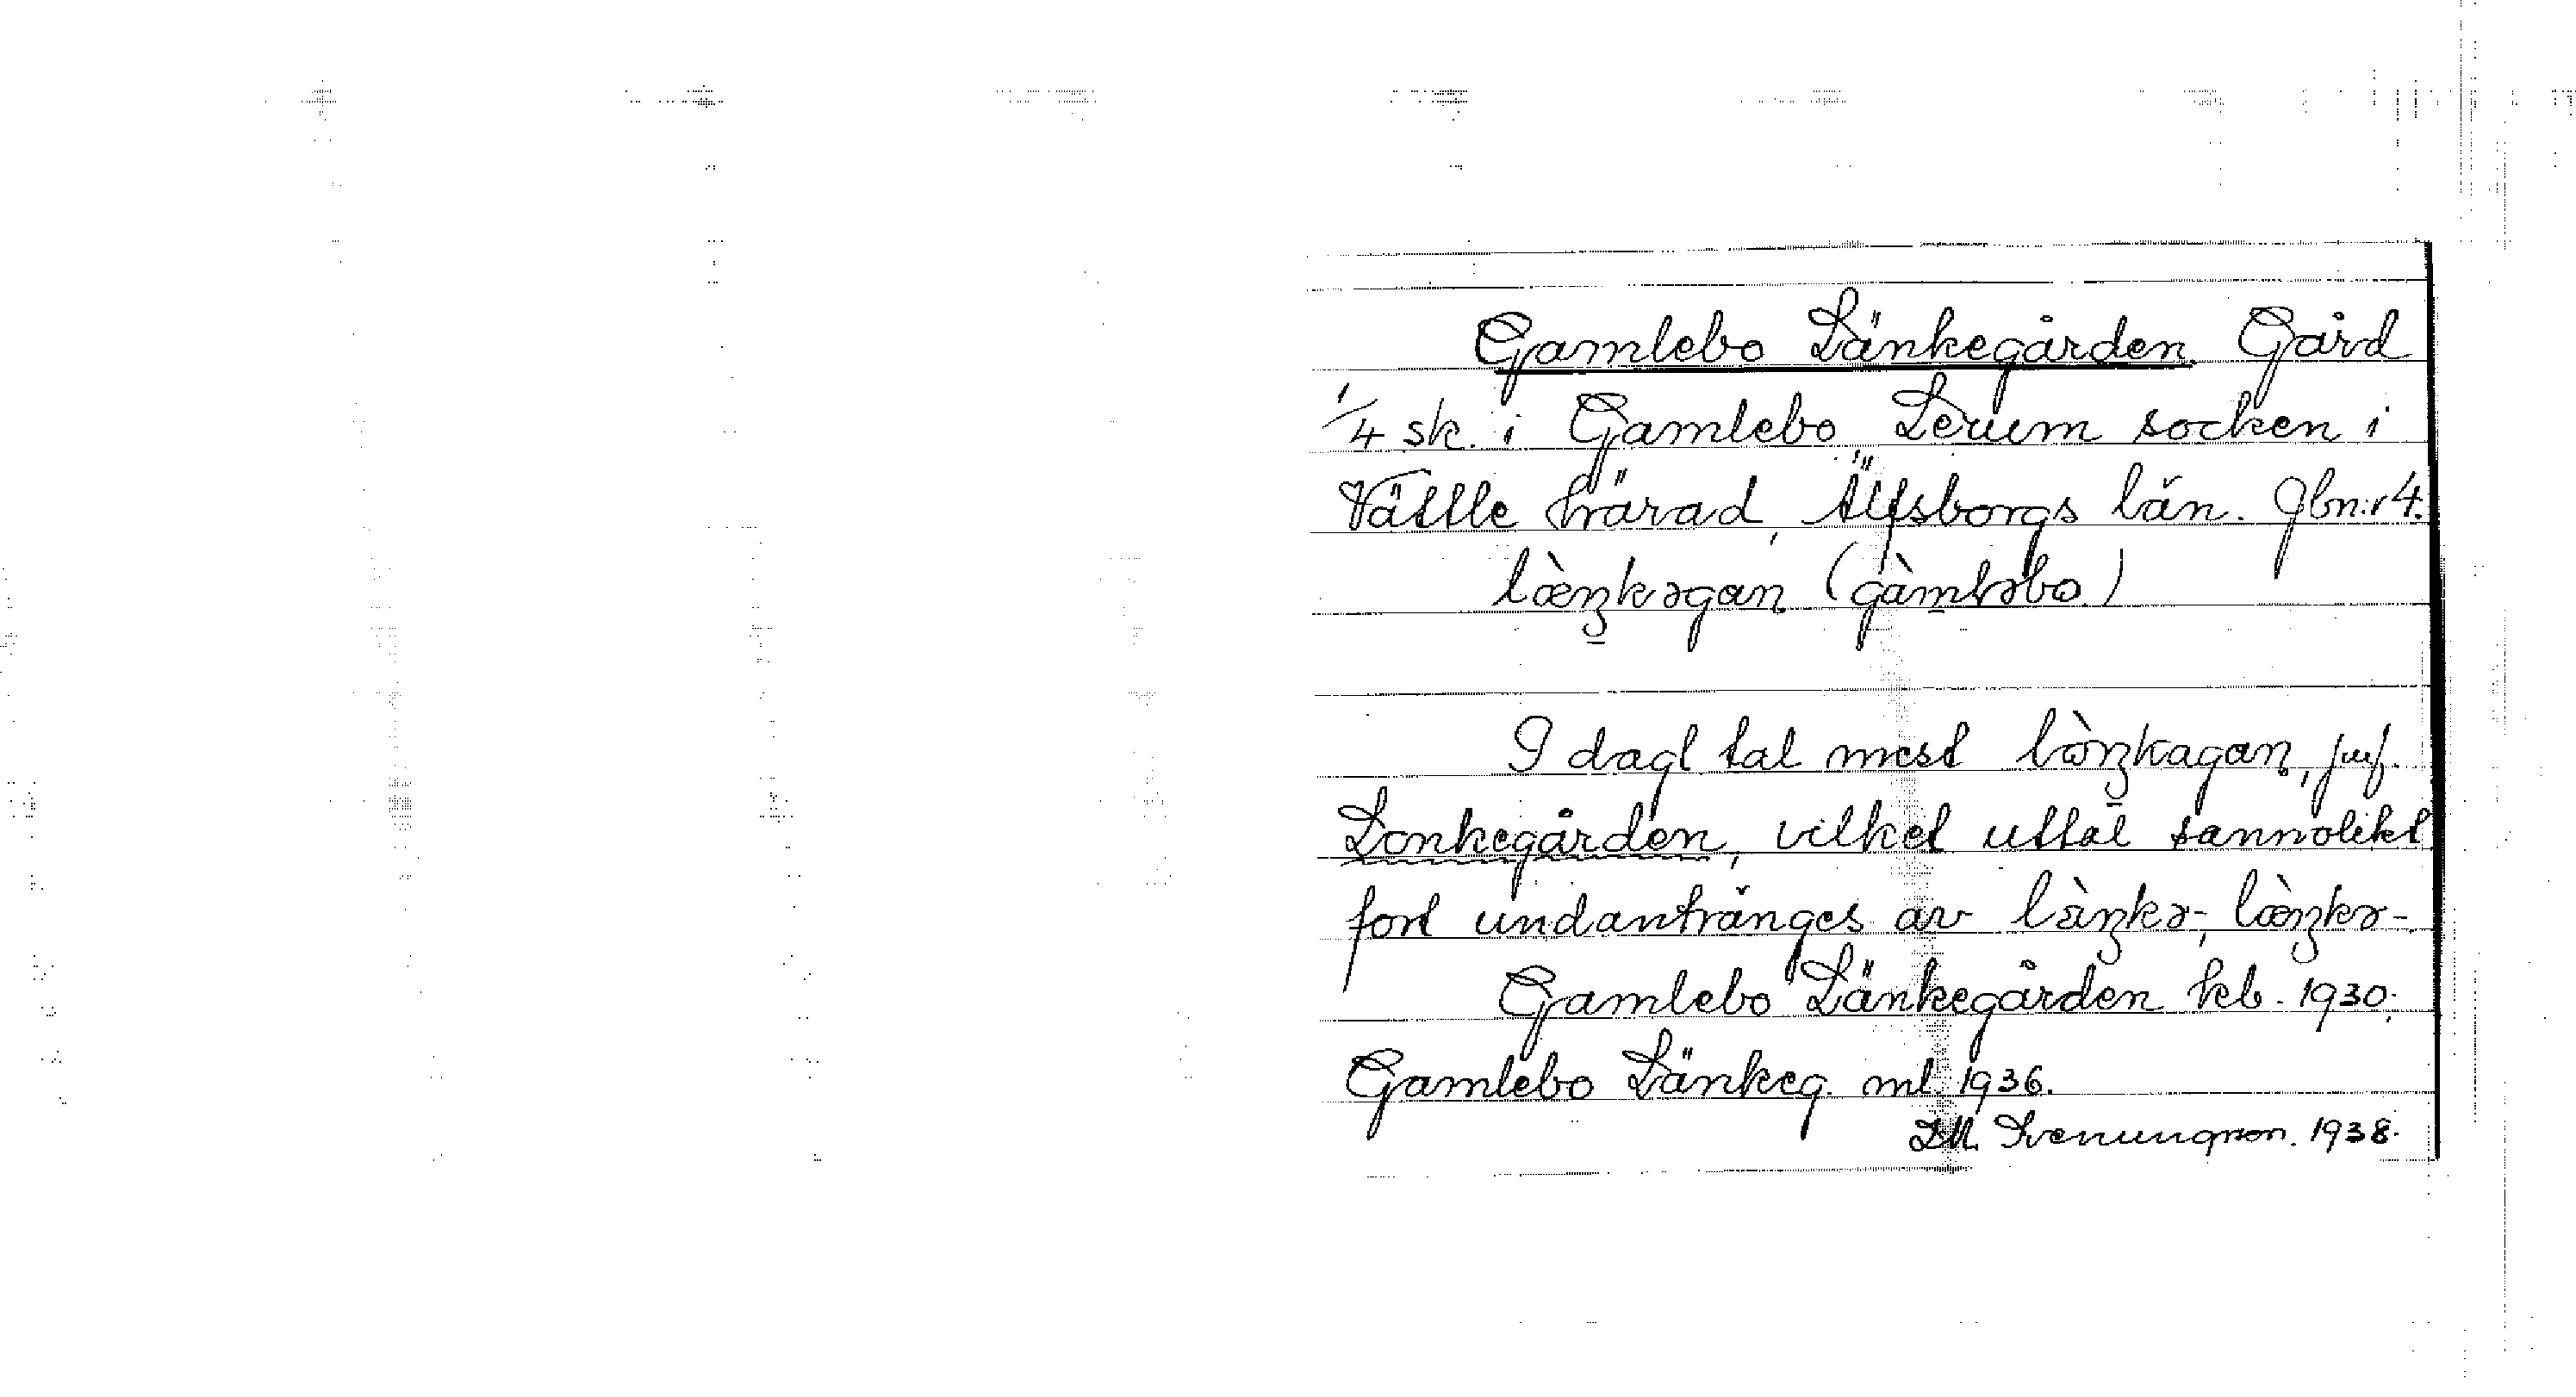 Gamlebo Länkegården. Gård
1/4 sk. i Gamlebo, Lerum socken i
Vättle härad, Älfsborgs län. Jbn:r 4.
læ̀ŋkəgan (gàmləbo)
I dagl tal mest lòŋkagan, jmf.
Lonkegården, vilket uttal sannolikt
fort undantränges av làŋkə-, læ̀ŋkə-.
Gamlebo Länkegården kb. 1930;
Gamlebo Länkeg. ml. 1936.
Svenungsson. 1938.